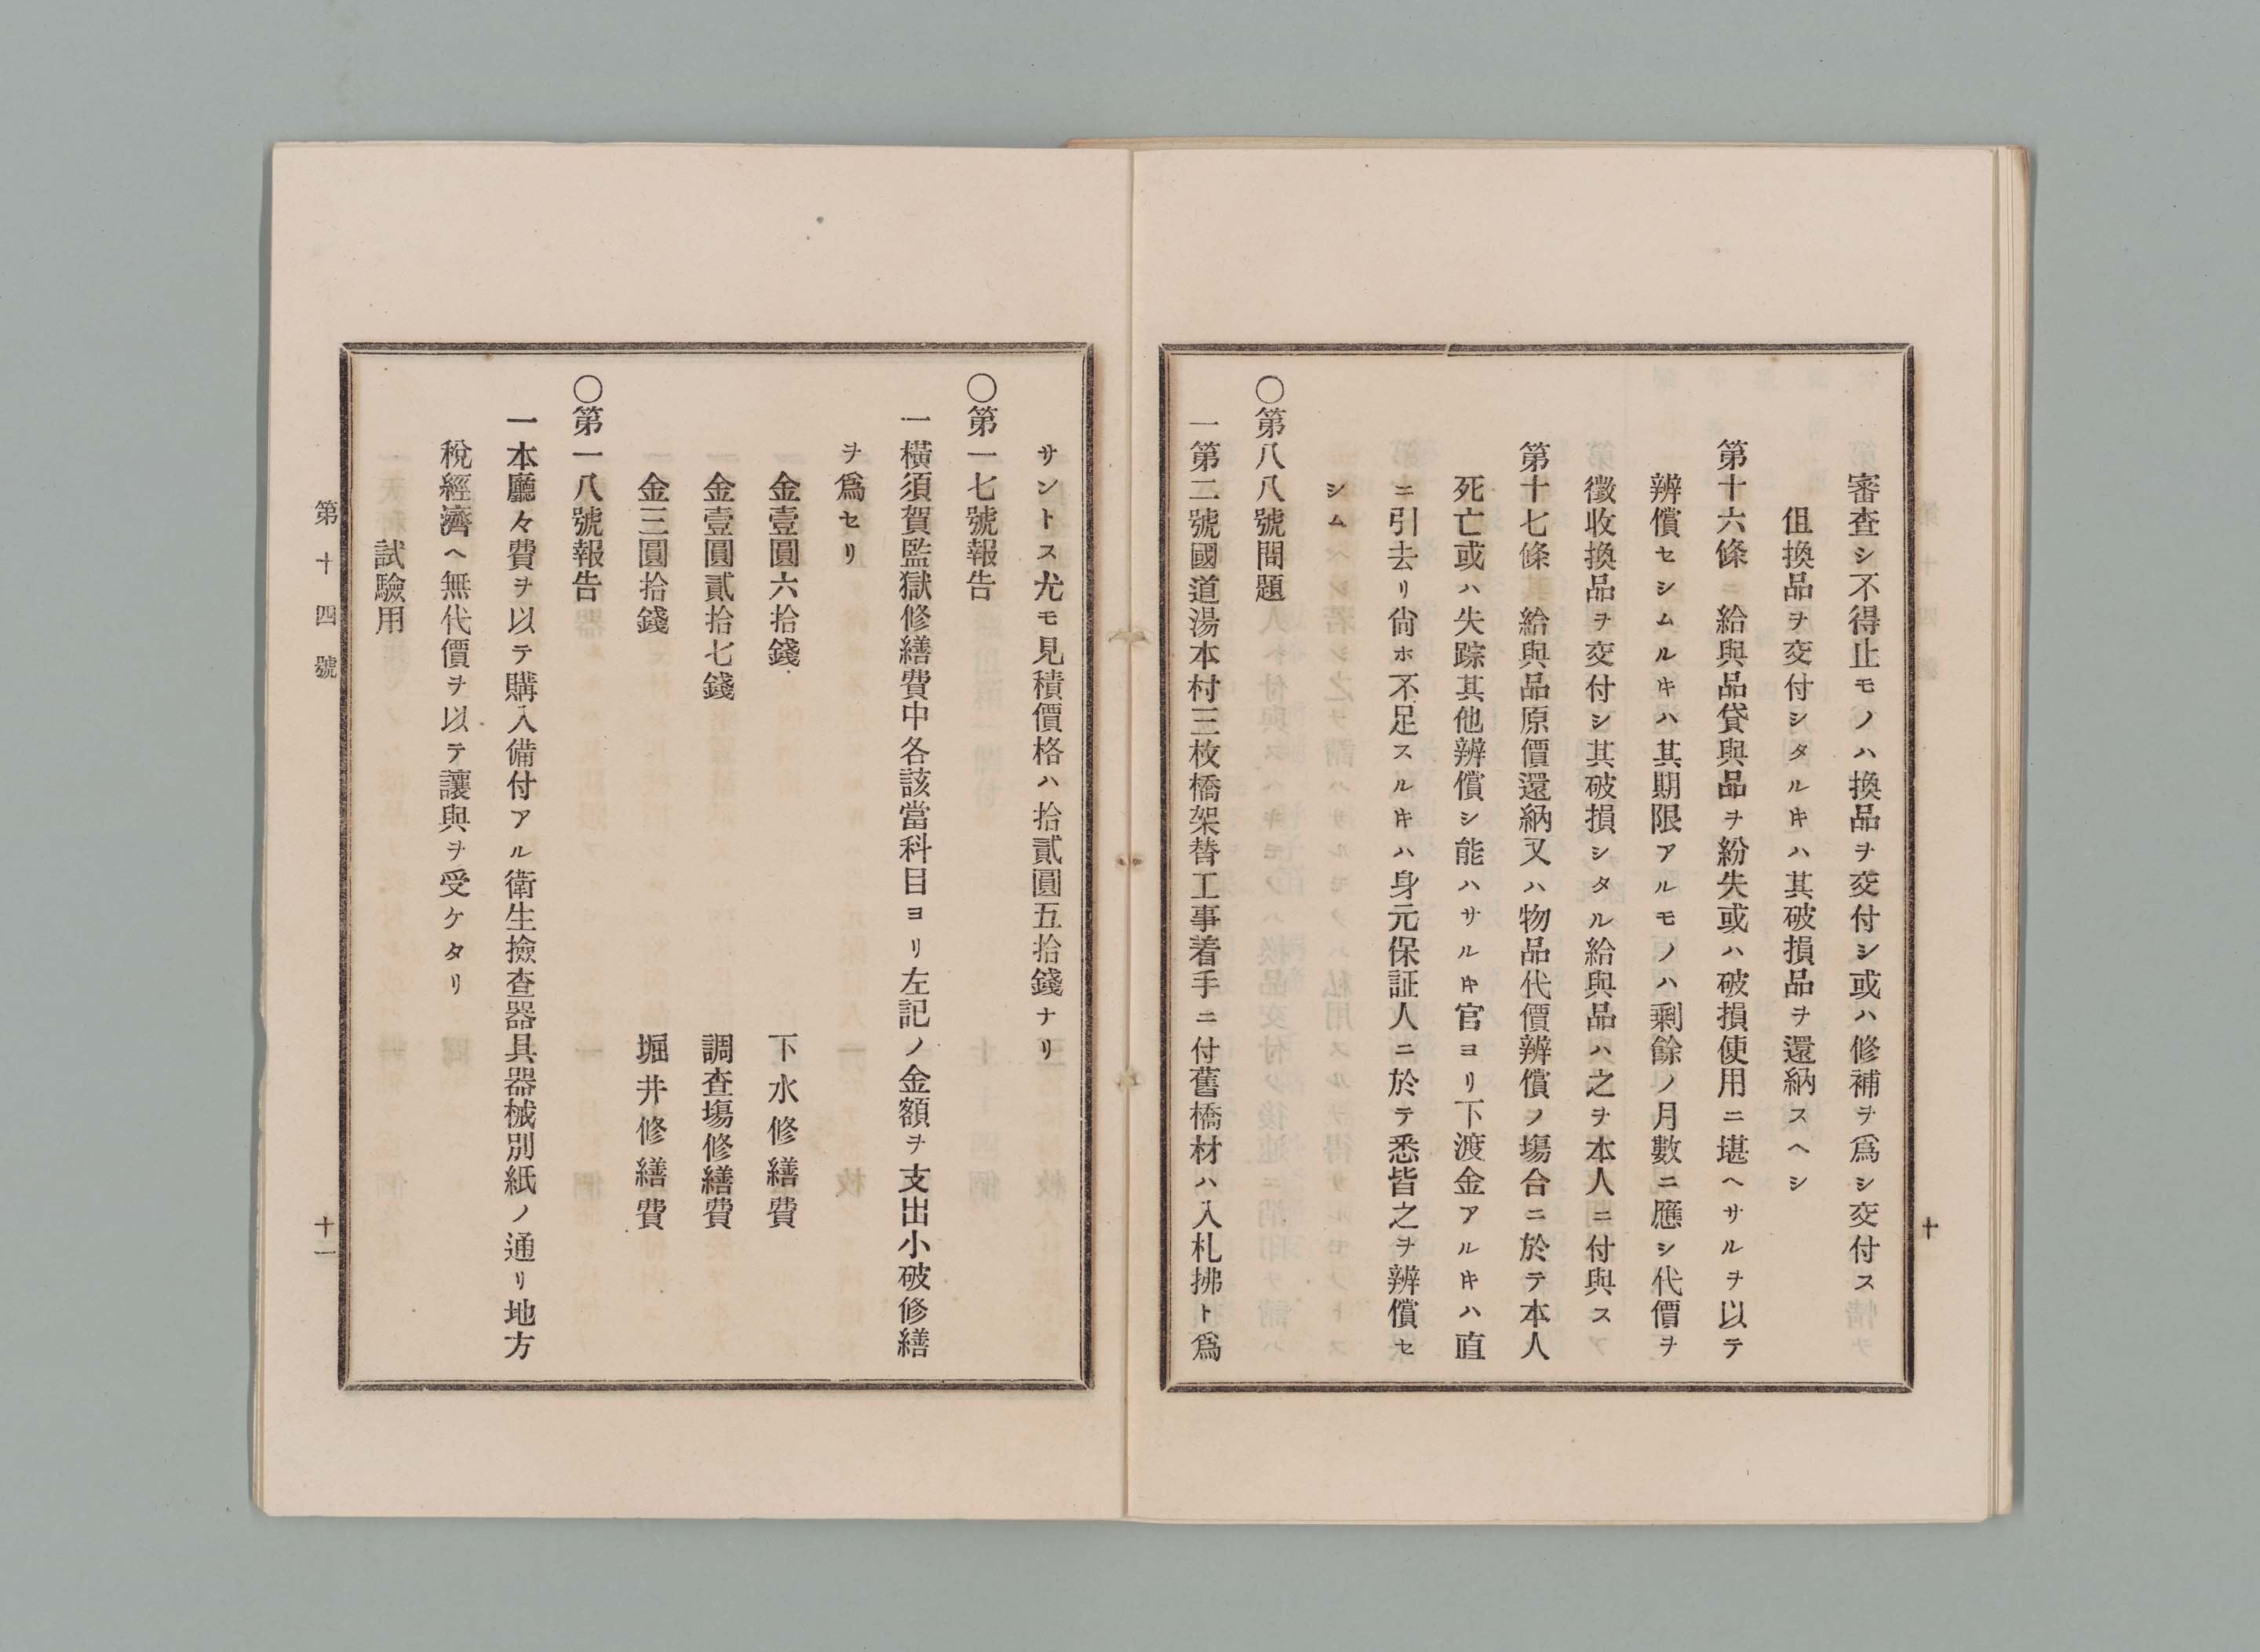 審査シ不得止モノハ換品ヲ交付シ或ハ修補ヲ爲シ交付ス
伹換品ヲ交付シタル𬼀ハ其破損品ヲ還納スヘシ
第十六條ニ給與品貸與品ヲ紛失或ハ破損使用ニ堪ヘサルヲ以テ
辨償セシムル𬼀ハ其期限アルモノハ剩餘ノ月數ニ應シ代價ヲ
徵收換品ヲ交付シ其破損シタル給與品ハ之ヲ本人ニ付與ス
第十七條 給與品原價還納又ハ物品代價辨償ノ塲合ニ於テ本人
死亡或ハ失踪其他辨償シ能ハサル𬼀官ヨリ下渡金アル𬼀ハ直
ニ引去リ尙ホ不足スル𬼀ハ身元保証人ニ於テ悉皆之ヲ辨償セ
シム
〇第八八號問題
一第二號國道湯本村三枚橋架替工事着手ニ付舊橋材ハ入札拂ト爲
十
サントス尤モ見積價格ハ拾貳圓五拾錢ナリ
〇第一七號報告
一橫須賀監獄修繕費中各該當科目ヨリ左記ノ金額ヲ支出小破修繕
ヲ爲セリ
金壹圓六拾錢 下水修繕費
金壹圓貳拾七錢 調査塲修繕費
金三圓拾錢 堀井修繕費
〇第一八號報告
一本廳々費ヲ以テ購入備付アル衛生撿查器具器械別紙ノ通リ地方
稅經濟ヘ無代價ヲ以テ讓與ヲ受ケタリ
試驗用
第十四號
十一